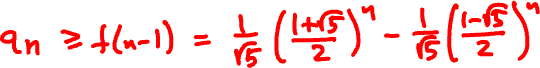 qₙ ≥ f(n-1) = 1/√5 ((1+√5)/2)ⁿ - 1/√5 ((1-√5)/2)ⁿ